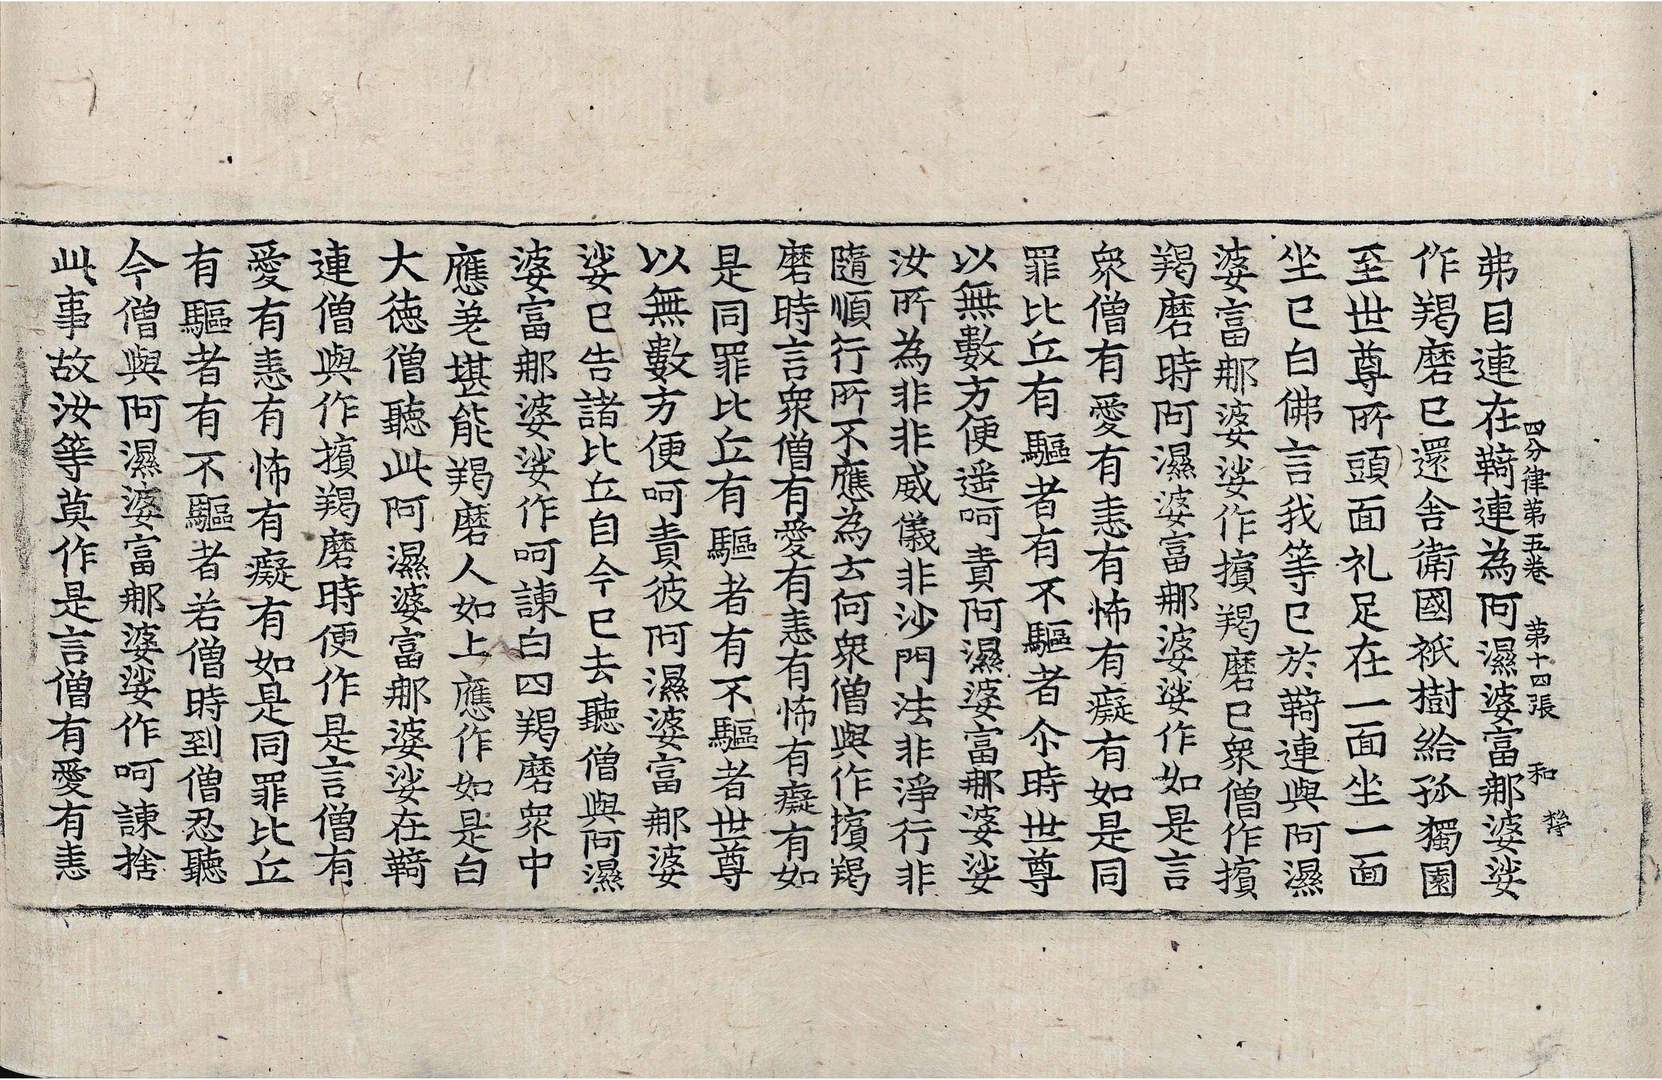 四分律第五卷 第十四張 和
弗目連在鞿連為阿濕婆富那婆娑
作羯磨已還舍衛國祇樹給孤獨園
至世尊所頭面礼足在一面坐一面
坐已白佛言我等已於鞿連與阿濕
婆富那婆娑作擯羯磨已衆僧作擯
羯磨時阿濕婆富那婆娑作如是言
衆僧有愛有恚有怖有癡有如是同
罪比丘有驅者有不驅者尒時世尊
以無數方便遥呵責阿濕婆富那婆娑
汝所為非非威儀非沙門法非淨行非
隨順行所不應為云何衆僧與作擯羯
磨時言衆僧有愛有恚有怖有癡有如
是同罪比丘有驅者有不驅者世尊
以無數方便呵責彼阿濕婆富那婆
娑已告諸比丘自今已去聽僧與阿濕
婆富那婆娑作呵諫白四羯磨衆中
應差堪能羯磨人如上應作如是白
大德僧聽此阿濕婆富那婆娑在鞿
連僧與作擯羯磨時便作是言僧有
愛有恚有怖有癡有如是同罪比丘
有驅者有不驅者若僧時到僧忍聽
今僧與阿濕婆富那婆娑作呵諫捨
此事故汝等莫作是言僧有愛有恚